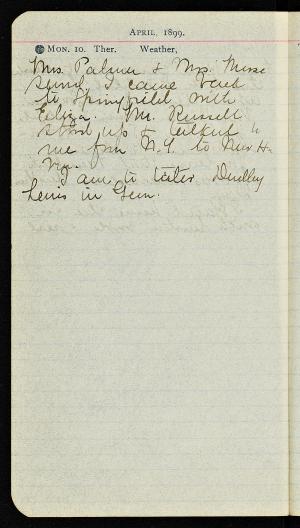 APRIL, 1899.
MON. 10. Ther. Weather,
Mrs. Palmer & Mrs. Morse
I came back
to Springfield with
Edyza. Mr. Russell
stood up & talked to
me from N.Y. to New H-
I am to tutor Dudley
Lewis in Geom.